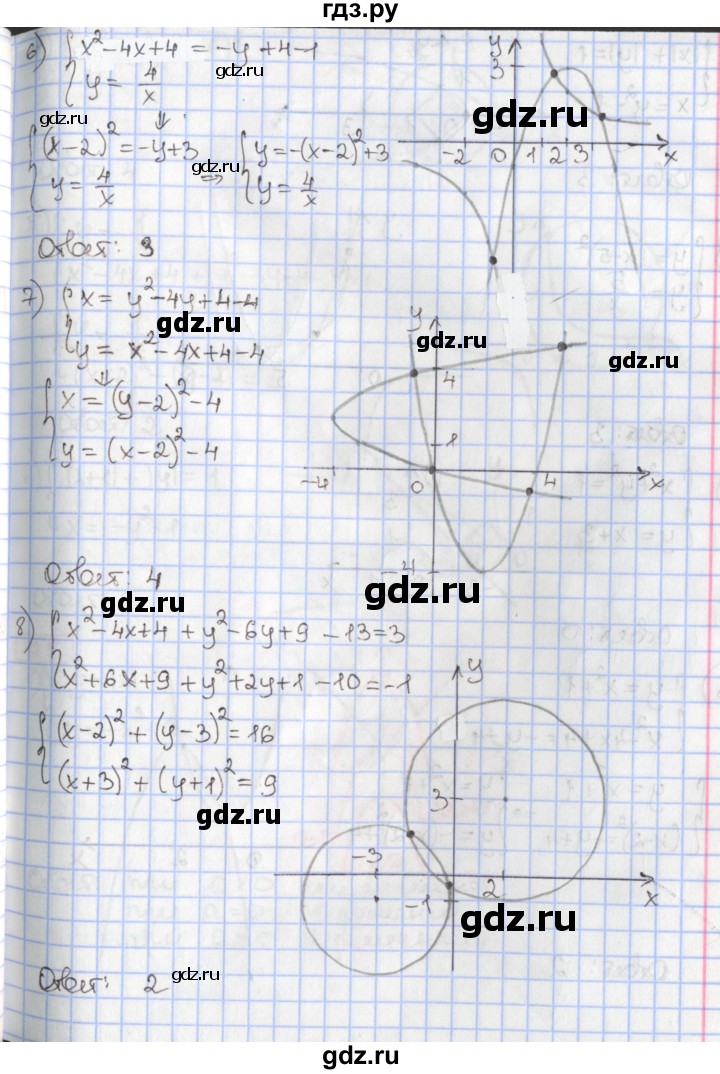 гдз.ру
6) { x² - 4x + 4 = -y + 4 - 1
{ y = 4/x
gdz.ru
gdz.ru
{ (x-2)² = -y+3 ⇒ { y = -(x-2)² + 3
{ y = 4/x { y = 4/x
gdz.ru
y
3
gdz.ru
-2 0 1 2 3 x
Ответ: 3
7) { x = y² - 4y + 4 - 4
{ y = x² - 4x + 4 - 4
gdz.ru
{ x = (y-2)² - 4
{ y = (x-2)² - 4
gdz.ru
y
gdz.ru
gdz.ru
4
1
-4 0 4 x
-4
Ответ: 4
gdz.ru
gdz.ru
8) { x² - 4x + 4 + y² - 6y + 9 - 13 = 3
{ x² + 6x + 9 + y² + 2y + 1 - 10 = -1
{ (x-2)² + (y-3)² = 16
{ (x+3)² + (y+1)² = 9
gdz.ru
y
3
-3
-1 2 x
gdz.ru
Ответ: 2
gdz.ru
gdz.ru